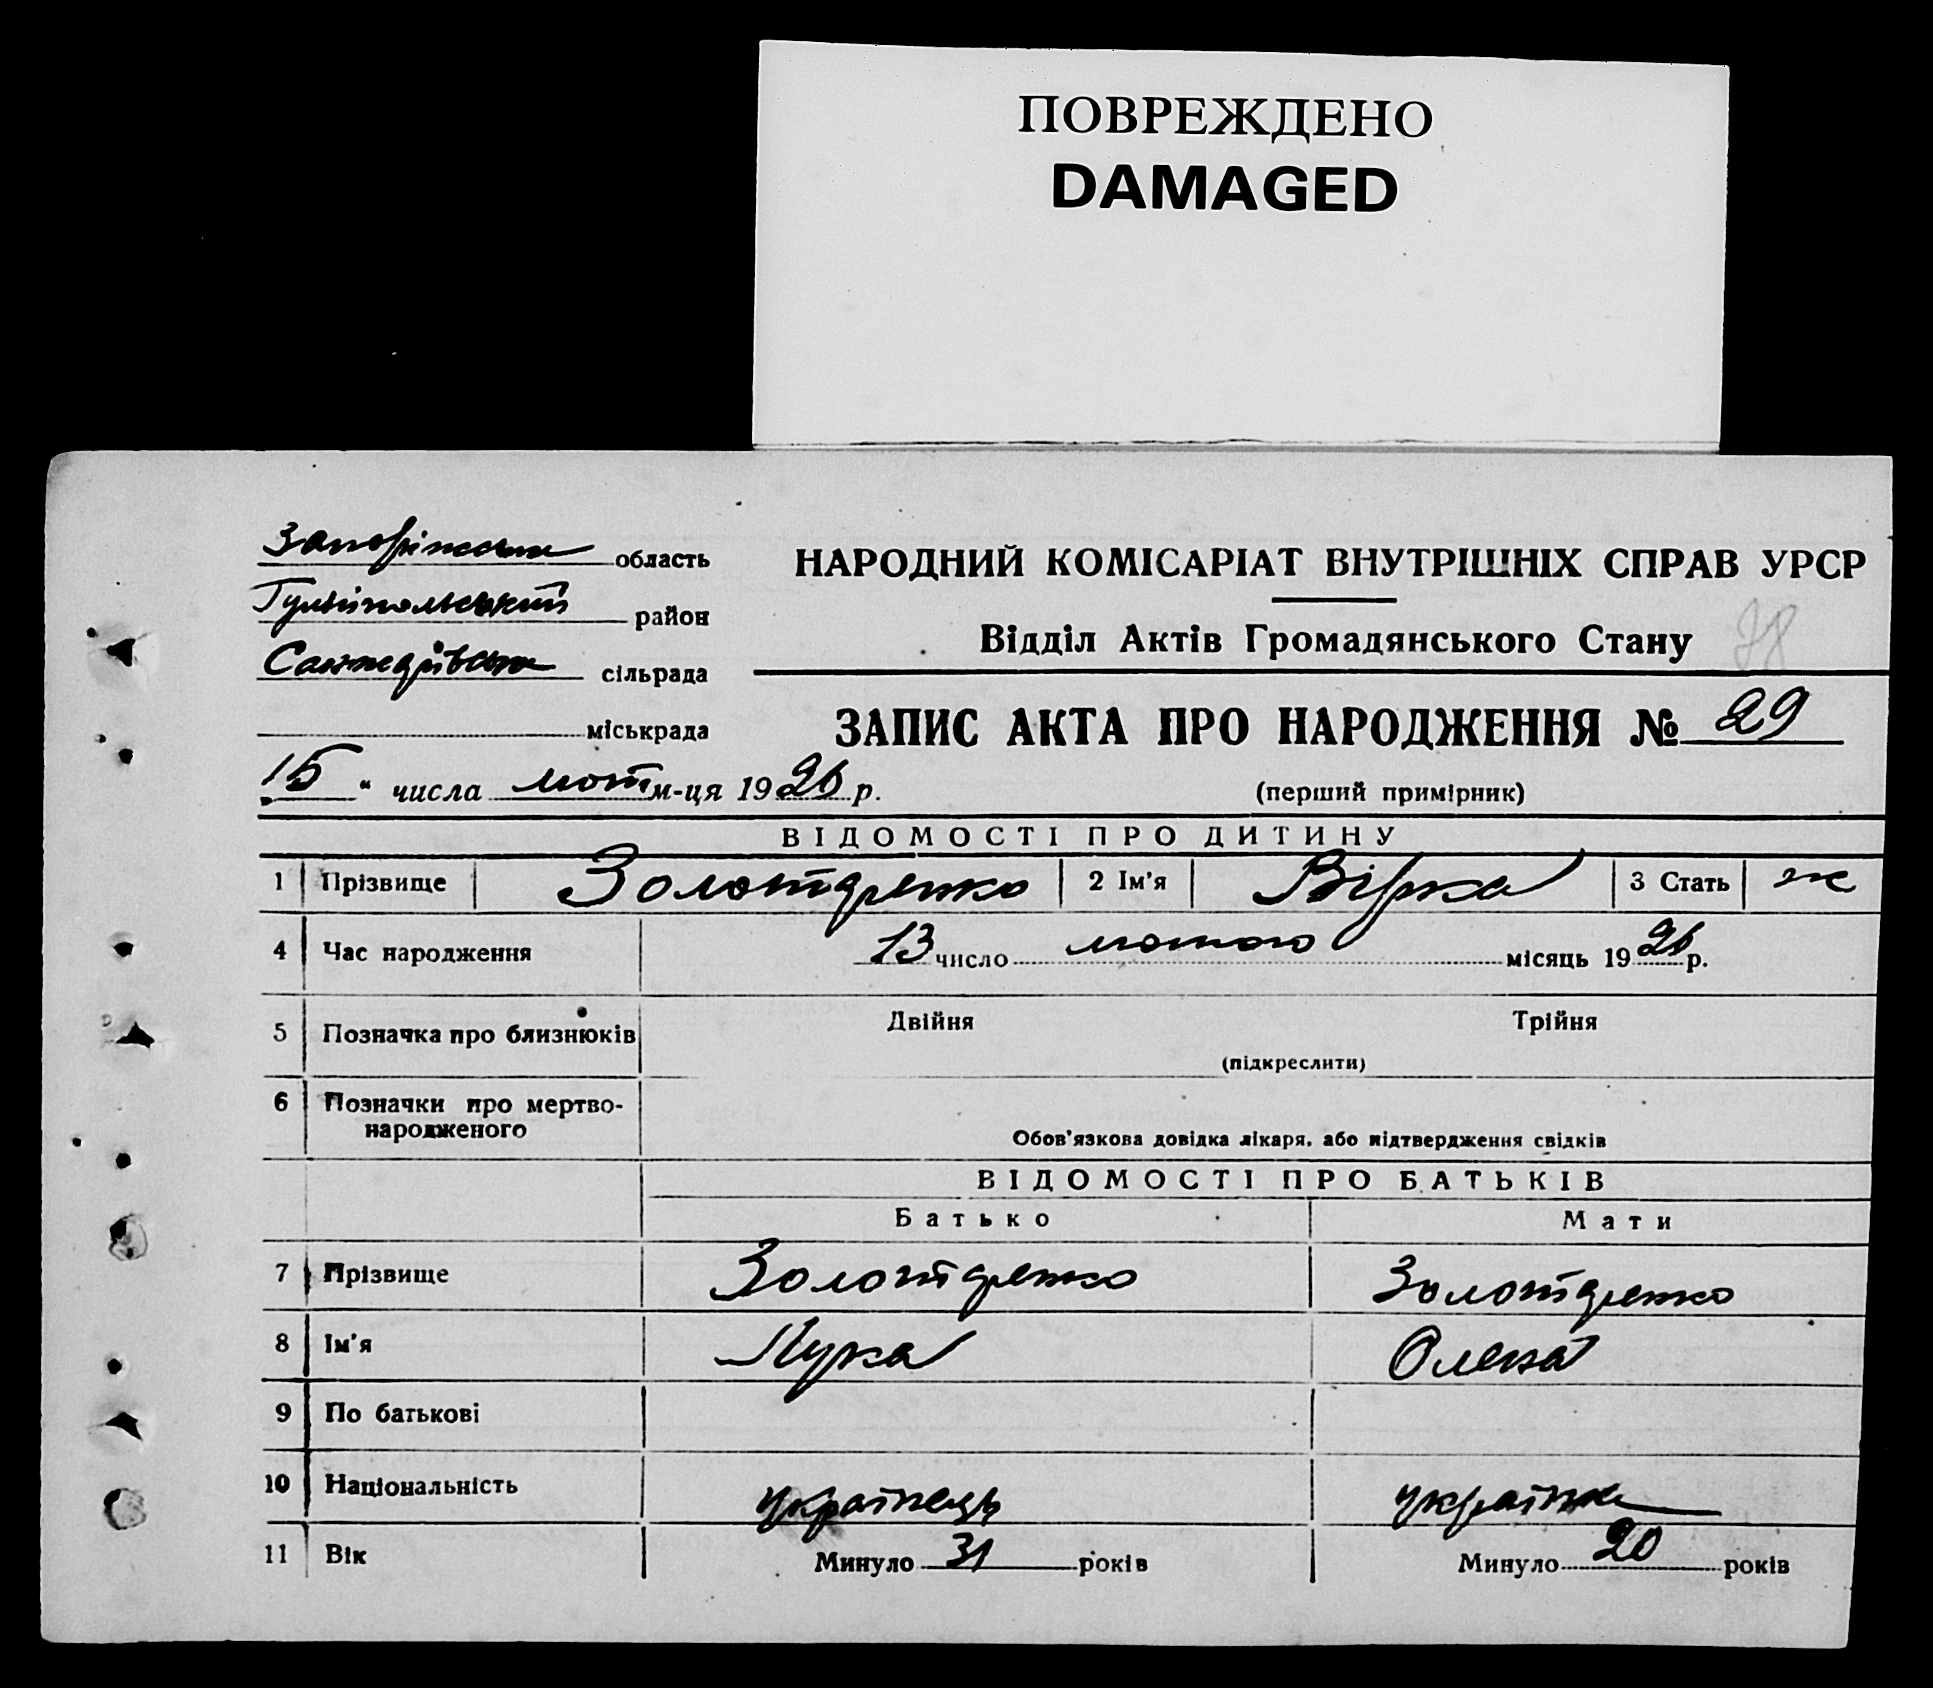 ПОВРЕЖДЕНО
DAMAGED
Запоріжська область
Гуляйпольський район
сільрада
міськрада
15 " числа лют м-ця 1926 р.
НАРОДНИЙ КОМІСАРІАТ ВНУТРІШНІХ СПРАВ УРСР
Відділ Актів Громадянського Стану
78
ЗАПИС АКТА ПРО НАРОДЖЕННЯ № 29
(перший примірник)
ВІДОМОСТІ ПРО ДИТИНУ
1 Прізвище Золотаренко 2 Ім'я Вірка 3 Стать ж
4 Час народження 13 число лютого місяць 1926 р.
5 Позначка про близнюків Двійня Трійня
(підкреслити)
6 Позначки про мертво-
народженого
Обов'язкова довідка лікаря, або підтвердження свідків
ВІДОМОСТІ ПРО БАТЬКІВ
Батько Мати
7 Прізвище Золотаренко Золотаренко
8 Ім'я Лука Олена
9 По батькові
10 Національність українець українка
11 Вік Минуло 31 років Минуло 20 років